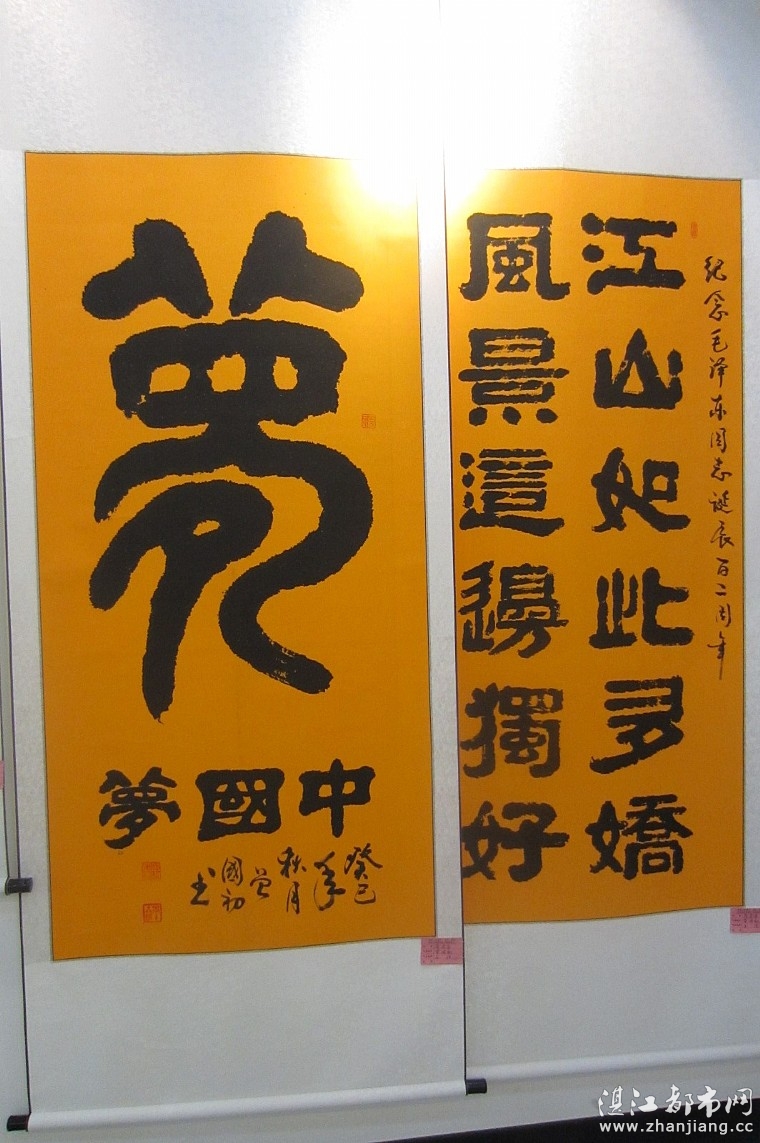 夢
中國夢
癸巳年
秋月
曾
國初
书
紀念毛泽东同志诞辰百二周年
江山如此多嬌
風景這邊獨好
湛江都市网
www.zhanjiang.cc